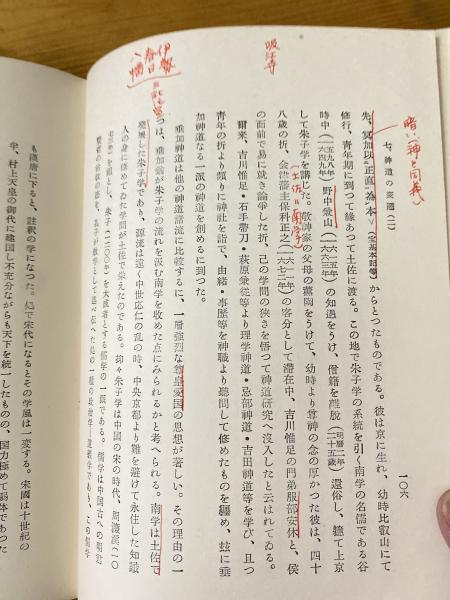 一〇六
七、神道の変遷(二)
先、冥加以㆓正直㆒為㆑本㆑(宝基本記等)からとつたものである。彼は京に生れ、幼時比叡山にて
修行、青年期に到つて縁あつて土佐に渡る。この地で朱子学の系統を引く南学の名儒である谷
時中(一五九八年〜一六四九年)野中兼山(一六一五年〜一六六三年)の知遇をうけ、僧籍を離脱(明暦二年)(二十五歳)還俗し、軈て上京
して朱子学を講じた。敬神家の父母の薫陶をうけて、幼時より尊神の念の厚かつた彼は、四十
八歳の折、会津藩主保科正之(一六七二年)の客分として滞在中、吉川惟足の門弟服部安休と、侯
の面前で易に就き論争した折、己の学問の狭さを悟つて神道研究へ没入したと云はれてゐる。
爾来、吉川惟足・石手帯刀・萩原兼従等より理学神道・忌部神道・吉田神道等を学び、且つ
青年の折より頻りに神社を詣で、由緒・事歴等を神職より聴問して修めたものを纒め、玆に垂
加神道なる一派の神道を創めるに到つた。
垂加神道は他の神道諸流に比較するに、一層強烈な尊皇愛国の思想が著しい。その理由の一
つは、垂加翁が朱子学の流れを汲む南学を収めた点にみられるかと考へられる。南学は土佐で
発展した朱子学であり、源流は遠く中世応仁の乱の時、中央京都より難を避けて永住した知識
人の身に修めてゐた学問が土佐で栄えたのである。抑々朱子学は中国の宋の時代、周濂渓(一〇
を大成者とする儒学の一派である。儒学は中国古への明
も漢唐に下ると、註釈の学になつた。処で宋代になるとその学風は一変する。宋國は十世紀の
、村上天皇の御代に建国し不充分ながらも天下を統一したものの、国力極めて弱体であつた
伊勢
春日
八幡
(土佐=南学)